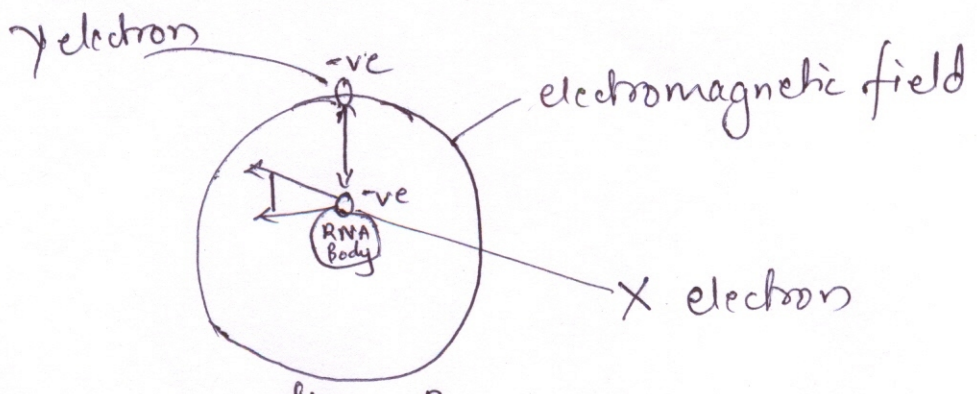 Y electron
-ve
electromagnetic field
-ve
RNA
Body
X electron